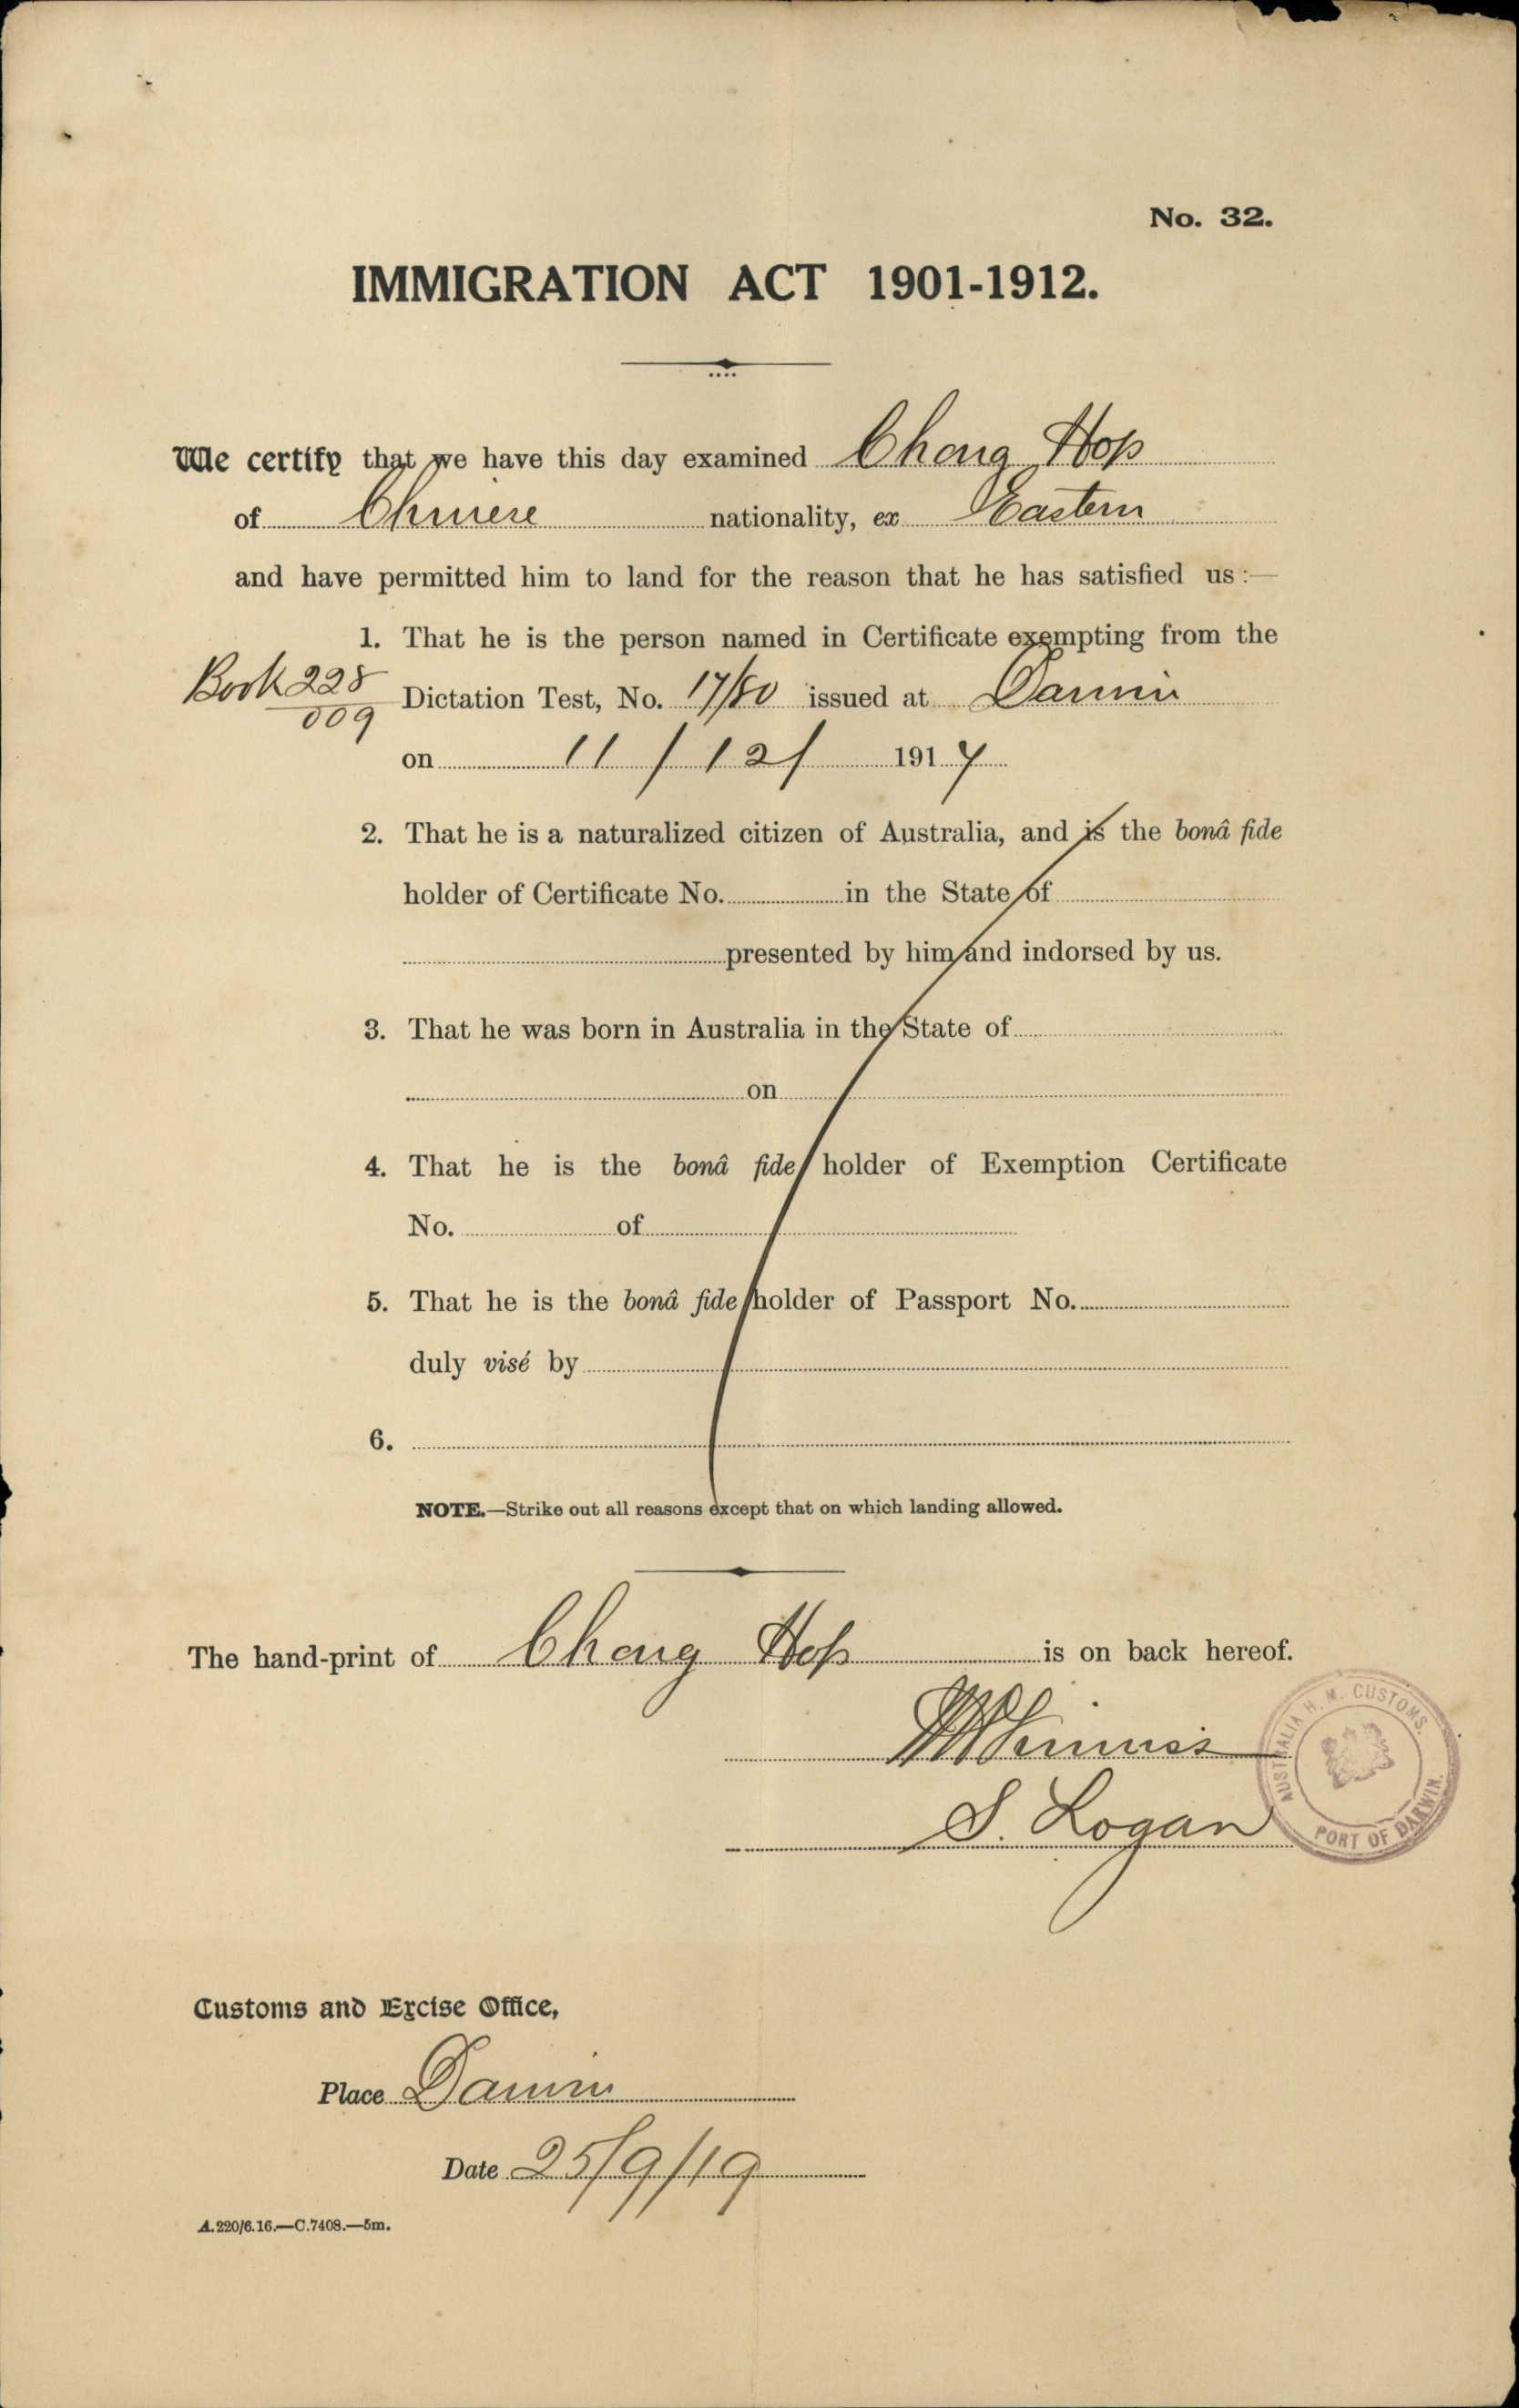 No. 32.
IMMIGRATION ACT 1901-1912.
We certify that we have this day examined Chong Hop
of Chinese nationality, ex Eastern
and have permitted him to land for the reason that he has satisfied us:—
1. That he is the person named in Certificate exempting from the
Book 228
009
Dictation Test, No. 17/80 issued at Darwin
on 11/12/ 1917
2. That he is a naturalized citizen of Australia, and is the bonâ fide
holder of Certificate No. in the State of
presented by him and indorsed by us.
3. That he was born in Australia in the State of
on
4. That he is the bonâ fide holder of Exemption Certificate
No. of
5. That he is the bonâ fide holder of Passport No.
duly visé by
6.
NOTE.—Strike out all reasons except that on which landing allowed.
The hand-print of Chong Hop is on back hereof.
S. Logan
AUSTRALIA H. M. CUSTOMS.
PORT OF DARWIN.
Customs and Excise Office,
Place Darwin
Date 25/9/19
A.220/6.16.—C.7408.—5m.